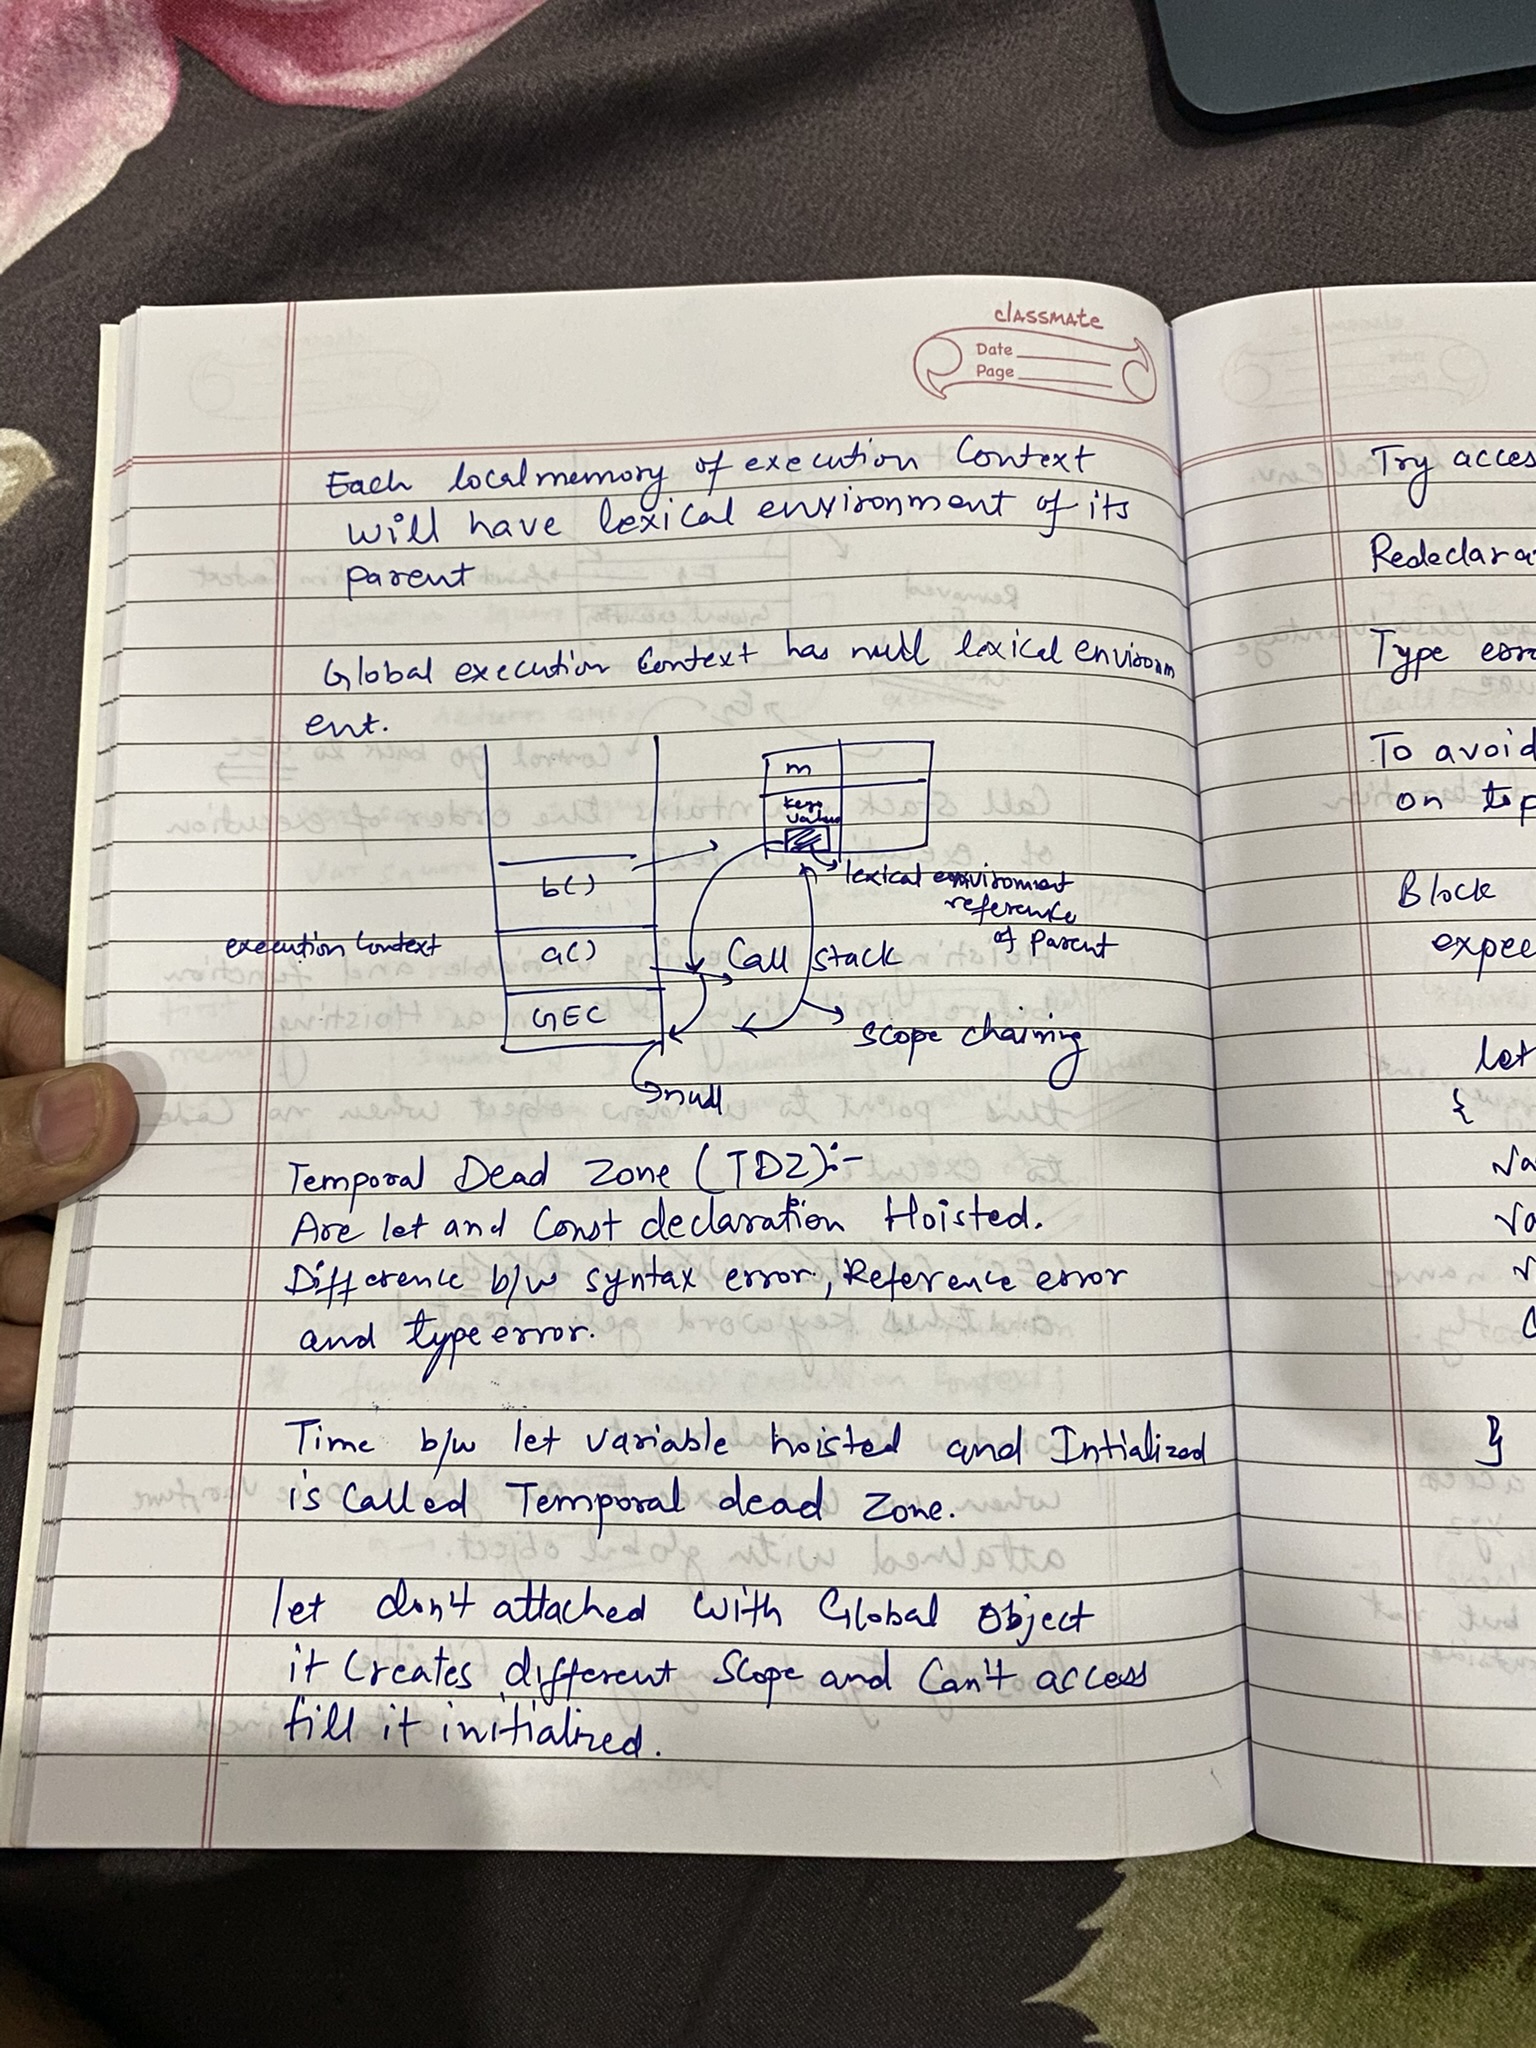 classmate
Date
Page
Each local memory of execution Context
will have lexical environment of its
parent
Global execution Context has null lexical environm
ent.
m
value
b()
lexical environment
reference
of parent
execution Context
a()
Call stack
GEC
Scope chaining
null
Temporal Dead Zone (TDZ):-
Are let and Const declaration Hoisted.
Difference b/w syntax error, Reference error
and type error.
Time b/w let variable hoisted and Intialized
is Called Temporal dead Zone.
let don't attached with Global Object
it Creates different Scope and Can't access
till it initialized.
Try acces
Redeclara
Type erro
To avoid
on top
Block
expec
let
{
va
va
}